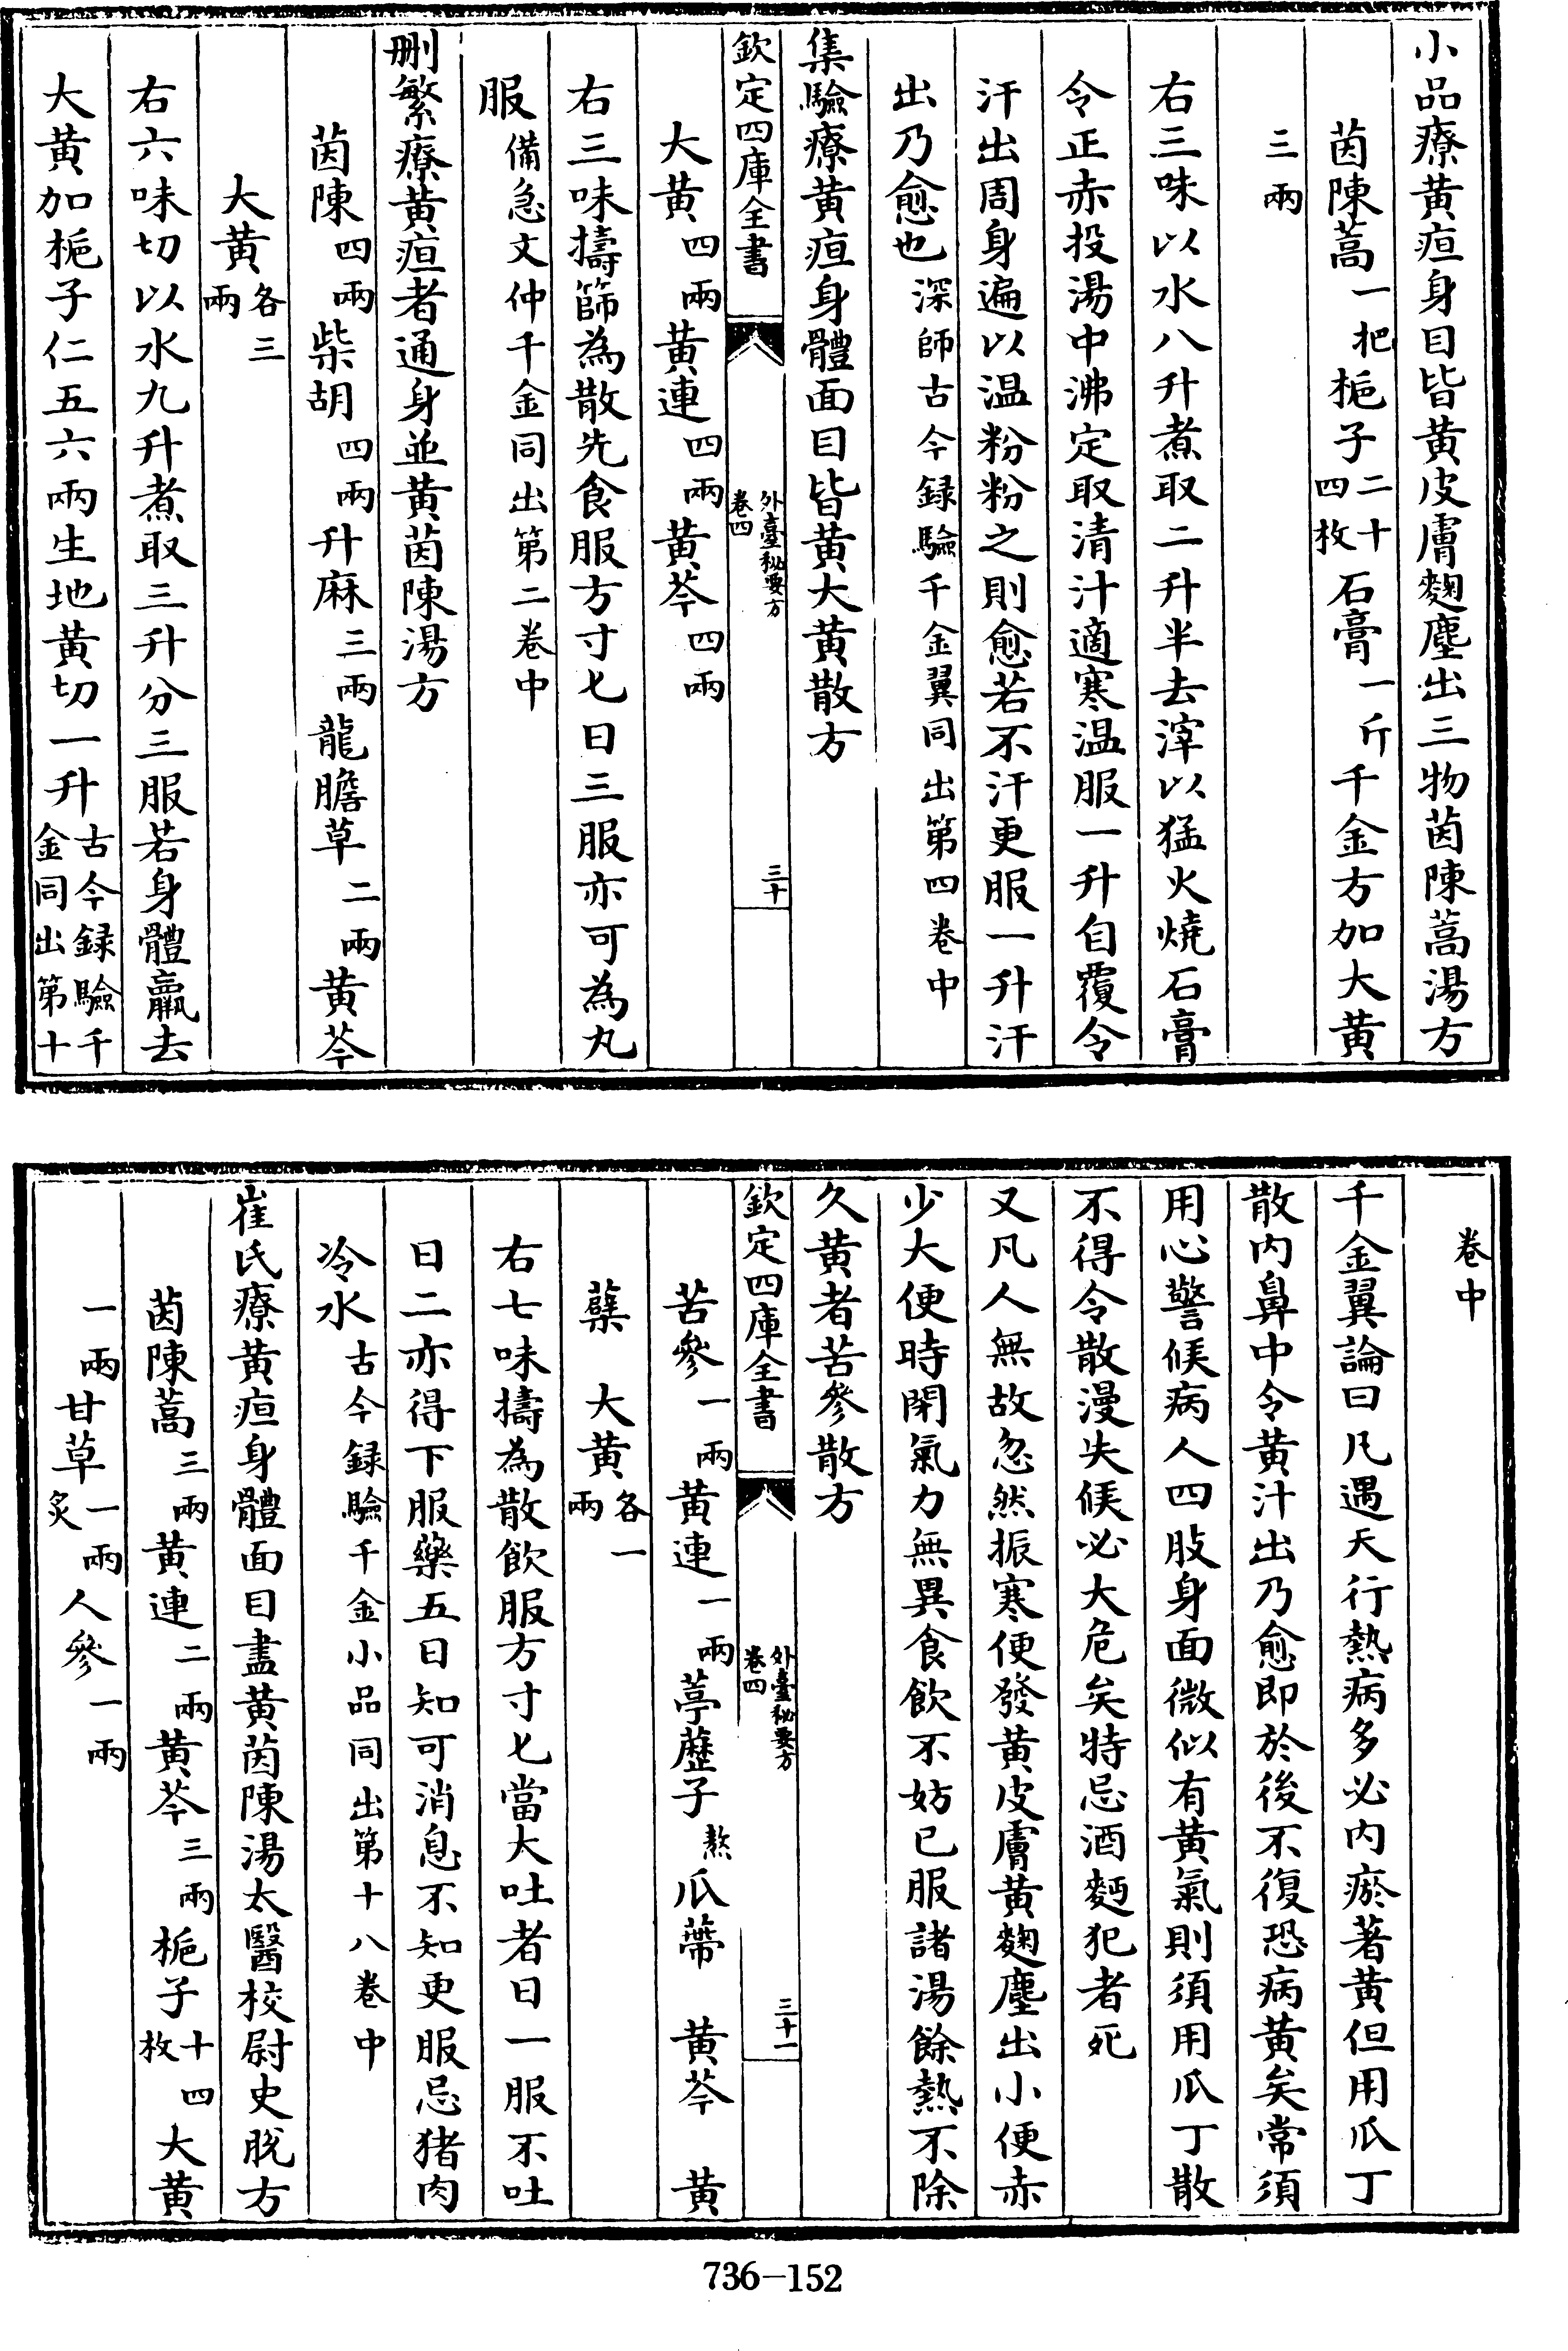 小品療黄疸身目皆黄皮膚麴塵出三物茵陳蒿湯方
茵陳蒿一把梔子二十四枚石膏一斤千金方加大黄
三兩
右三味以水八升煮取二升半去滓以猛火燒石膏
令正赤投湯中沸定取清汁適寒温服一升自覆令
汗出周身遍以温粉粉之則愈若不汗更服一升汗
出乃愈也深師古今録驗千金翼同出第四卷中
集驗療黄疸身體面目皆黄大黄散方
欽定四庫全書
外臺秘要方
卷四
三十
大黄四兩黄連四兩黄芩四兩
右三味擣篩為散先食服方寸匕日三服亦可為丸
服備急文仲千金同出第二卷中
刪繁療黄疸者通身並黄茵陳湯方
茵陳四兩柴胡四兩升麻三兩龍膽草二兩黄芩
大黄各三兩
右六味切以水九升煮取三升分三服若身體羸去
大黄加梔子仁五六兩生地黄切一升古今録驗千金同出第十
卷中
千金翼論曰凡遇天行熱病多必内瘀著黄但用瓜丁
散内鼻中令黄汁出乃愈即於後不復恐病黄矣常須
用心警候病人四肢身面微似有黄氣則須用瓜丁散
不得令散漫失候必大危矣特忌酒麪犯者死
又凡人無故忽然振寒便發黄皮膚黄麴塵出小便赤
少大便時閉氣力無異食飲不妨已服諸湯餘熱不除
久黄者苦參散方
欽定四庫全書
外臺秘要方
卷四
三十一
苦參一兩黄連一兩葶藶子熬瓜蔕　黄芩　黄
蘗　大黄各一兩
右七味擣為散飲服方寸匕當大吐者日一服不吐
日二亦得下服藥五日知可消息不知更服忌猪肉
冷水古今録驗千金小品同出第十八卷中
崔氏療黄疸身體面目盡黄茵陳湯太醫校尉史脱方
茵陳蒿三兩黄連二兩黄芩三兩梔子十四枚大黄
一兩甘草一兩炙人參一兩
736-152